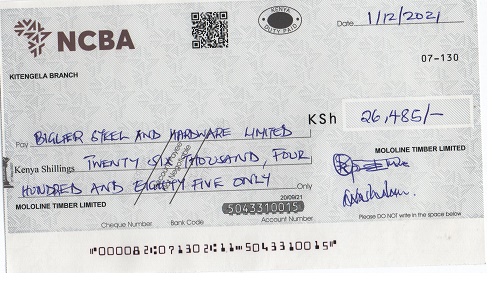 NCBA
KENYA
DUTY PAID
Date 1/12/2021
07-130
KITENGELA BRANCH
KSh 26,485/-
Pay BIGLIER STEEL AND HARDWARE LIMITED
Kenya Shillings TWENTY SIX THOUSAND, FOUR
HUNDRED AND EIGHTY FIVE ONLY Only
Account Payee
Not Negotiable
MOLOLINE TIMBER LIMITED
MOLOLINE TIMBER LIMITED
20/09/21
5043310015
Cheque Number Bank Code Account Number
Please DO NOT write in the space below
"000082:071302:11 5043310015"